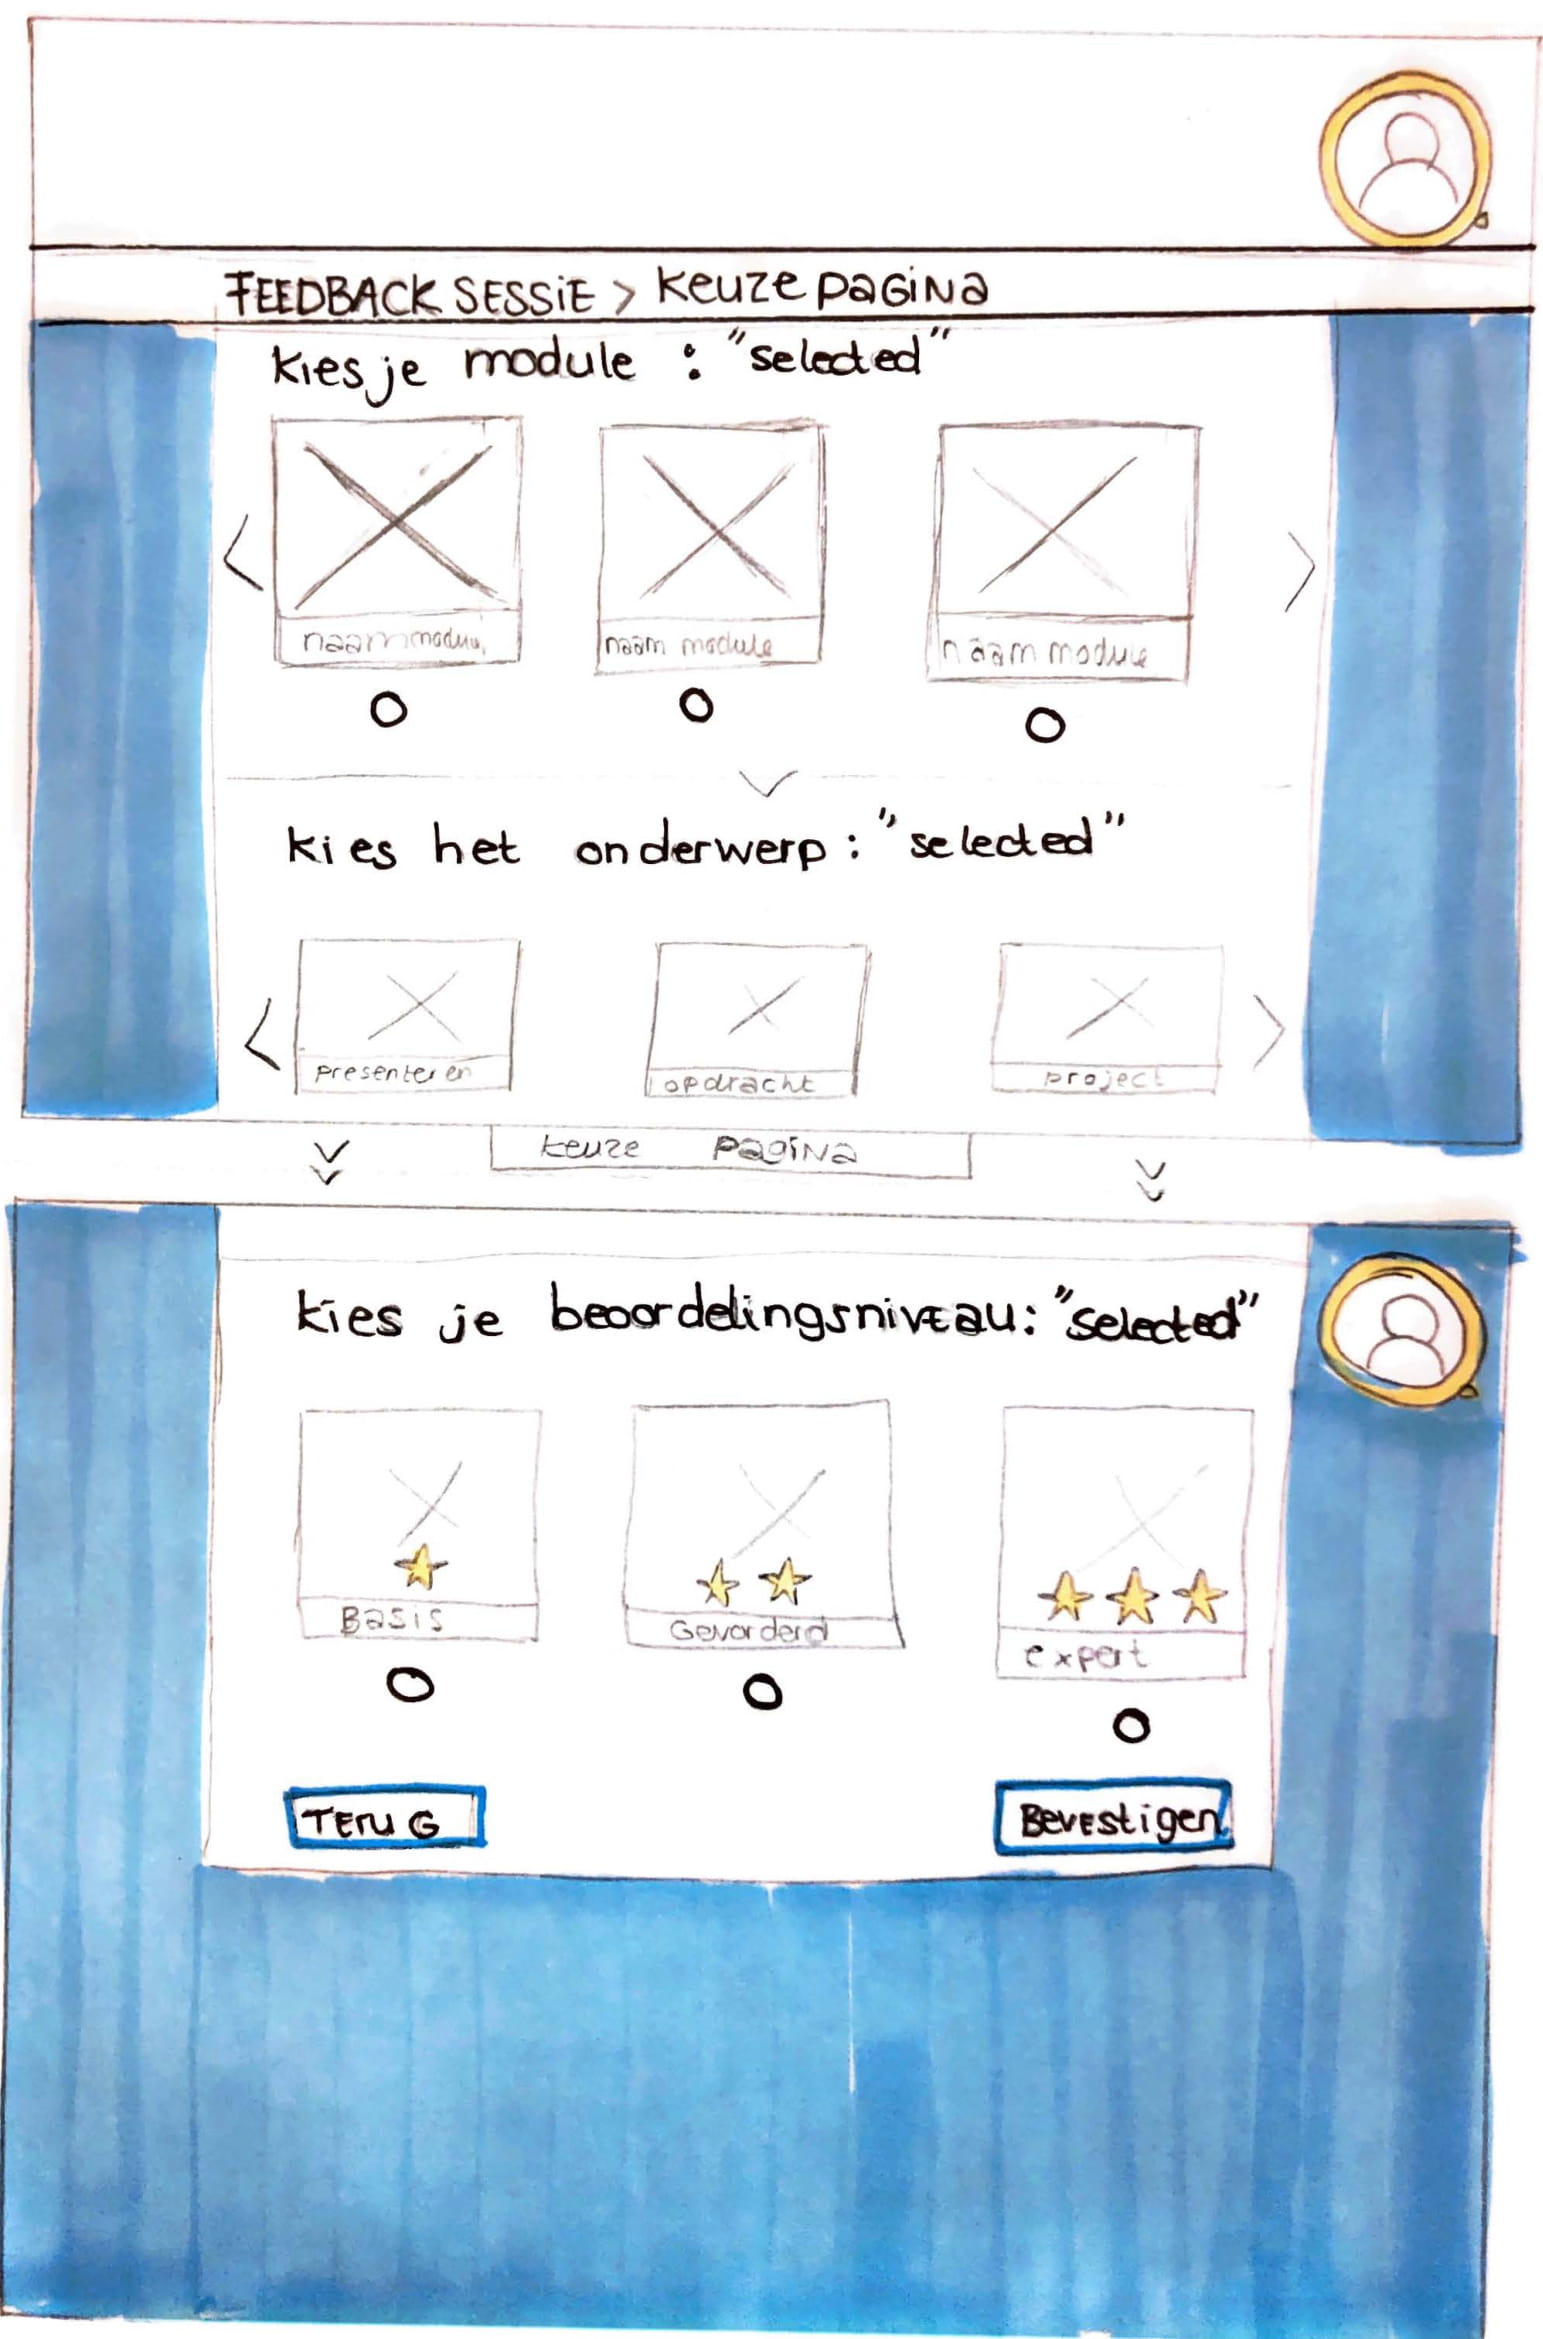 FEEDBACK SESSIE > Keuze pagina
Kies je module : "selected"
naam module
naam module
naam module
kies het onderwerp : "selected"
presenteren
opdracht
project
keuze pagina
kies je beoordelingsniveau: "selected"
Basis
Gevorderd
expert
TERUG
Bevestigen